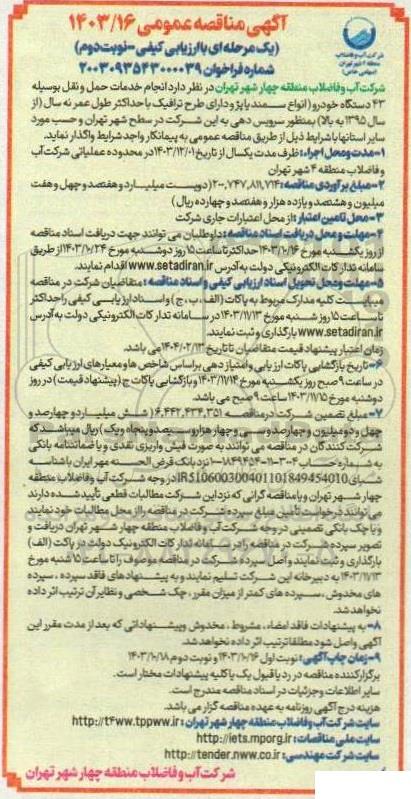 آگهی مناقصه عمومی ۱۴۰۳/۱۶
(یک مرحله‌ای با ارزیابی کیفی - نوبت دوم)
شماره فراخوان ۲۰۰۳۰۹۳۵۴۳۰۰۰۰۳۹
شرکت آب و فاضلاب
منطقه ۴ شهر تهران
(سهامی خاص)
شرکت آب و فاضلاب منطقه چهار شهر تهران در نظر دارد انجام خدمات حمل و نقل بوسیله
۴۳ دستگاه خودرو (انواع سمند یا پژو و دارای طرح ترافیک با حداکثر طول عمر نه سال (از
سال ۱۳۹۵ به بالا) بمنظور سرویس دهی به این شرکت در سطح شهر تهران و حسب مورد
سایر استانها با شرایط ذیل از طریق مناقصه عمومی به پیمانکار واجد شرایط واگذار نماید.
۱- مدت و محل اجراء: ظرف مدت یکسال از تاریخ ۱۴۰۳/۱۲/۰۱ در محدوده عملیاتی شرکت آب
و فاضلاب منطقه ۴ شهر تهران
۲- مبلغ برآوردی مناقصه: ۲۰۰,۷۴۷,۸۱۱,۷۱۴ (دویست میلیارد و هفتصد و چهل و هفت
میلیون و هشتصد و یازده هزار و هفتصد و چهارده ریال)
۳- محل تامین اعتبار: از محل اعتبارات جاری شرکت
۴- مهلت و محل دریافت اسناد مناقصه: داوطلبان می توانند جهت دریافت اسناد مناقصه
از روز یکشنبه مورخ ۱۴۰۳/۱۰/۱۶ حداکثر تا ساعت ۱۵ روز دوشنبه مورخ ۱۴۰۳/۱۰/۲۴ از طریق
سامانه تدارکات الکترونیکی دولت به آدرس www.setadiran.ir اقدام نمایند.
۵- مهلت و محل تحویل اسناد ارزیابی کیفی و اسناد مناقصه: متقاضیان شرکت در مناقصه
میبایست کلیه مدارک مربوط به پاکات (الف، ب، ج) و اسناد ارزیابی کیفی را حداکثر
تا ساعت ۱۵ روز شنبه مورخ ۱۴۰۳/۱۱/۱۳ در سامانه تدارکات الکترونیکی دولت به آدرس
www.setadiran.ir بارگذاری و ثبت نمایند.
زمان اعتبار پیشنهاد قیمت متقاضیان تا تاریخ ۱۴۰۴/۰۲/۱۳ می باشد.
۶- تاریخ بازگشایی پاکات ارزیابی و امتیاز دهی براساس شاخص ها و معیارهای ارزیابی کیفی
در ساعت ۹ صبح روز یکشنبه مورخ ۱۴۰۳/۱۱/۱۴ و بازگشایی پاکات ج (پیشنهاد قیمت) در روز
دوشنبه مورخ ۱۴۰۳/۱۱/۱۵ ساعت ۹ صبح می باشد.
۷- مبلغ تضمین شرکت در مناقصه ۶,۴۴۲,۴۳۴,۳۵۱ (شش میلیارد و چهارصد و
چهل و دو میلیون و چهارصد و سی و چهار هزار و سیصد و پنجاه و یک) ریال میباشد که
شرکت کنندگان در مناقصه می توانند به صورت فیش واریزی نقدی و یا ضمانتنامه بانکی
به شماره حساب ۱-۱۸۴۹۴۵۴-۱۱-۳۰۰۴ نزد بانک قرض الحسنه مهر ایران با شناسه
شبای IR510600300401101849454010 در وجه شرکت آب و فاضلاب منطقه
چهار شهر تهران و یا مناقصه گرانی که نزد این شرکت مطالبات قطعی تأیید شده دارند
می توانند درخواست تأمین مبلغ سپرده شرکت در مناقصه را از محل مطالبات خود نمایند
و یا چک بانکی تضمینی در وجه شرکت آب و فاضلاب منطقه چهار شهر تهران دریافت و
تصویر سپرده شرکت در مناقصه را در سامانه تدارکات الکترونیک دولت در پاکت (الف)
بارگذاری و ثبت نمایند و اصل سپرده شرکت در مناقصه موصوف را تا ساعت ۱۵ شنبه مورخ
۱۴۰۳/۱۱/۱۳ به دبیرخانه این شرکت تسلیم نمایند و به پیشنهادهای فاقد سپرده، سپرده
های مخدوش، سپرده های کمتر از میزان مقرر، چک شخصی و نظایر آن ترتیب اثر داده
نخواهد شد.
۸- به پیشنهادات فاقد امضاء، مشروط، مخدوش و پیشنهاداتی که بعد از مدت مقرر این
آگهی واصل شود مطلقا ترتیب اثر داده نخواهد شد.
۹- زمان چاپ آگهی: نوبت اول ۱۴۰۳/۱۰/۱۶ و نوبت دوم ۱۴۰۳/۱۰/۱۸
برگزار کننده مناقصه در رد یا قبول یک یا کلیه پیشنهادات مختار است.
سایر اطلاعات و جزئیات در اسناد مناقصه مندرج است.
هزینه درج آگهی روزنامه به عهده مناقصه گزار می باشد.
سایت شرکت آب و فاضلاب منطقه چهار شهر تهران: http://t4ww.tppww.ir
سایت ملی مناقصات: http://iets.mporg.ir
سایت شرکت مهندسی: http://tender.nww.co.ir
شرکت آب و فاضلاب منطقه چهار شهر تهران